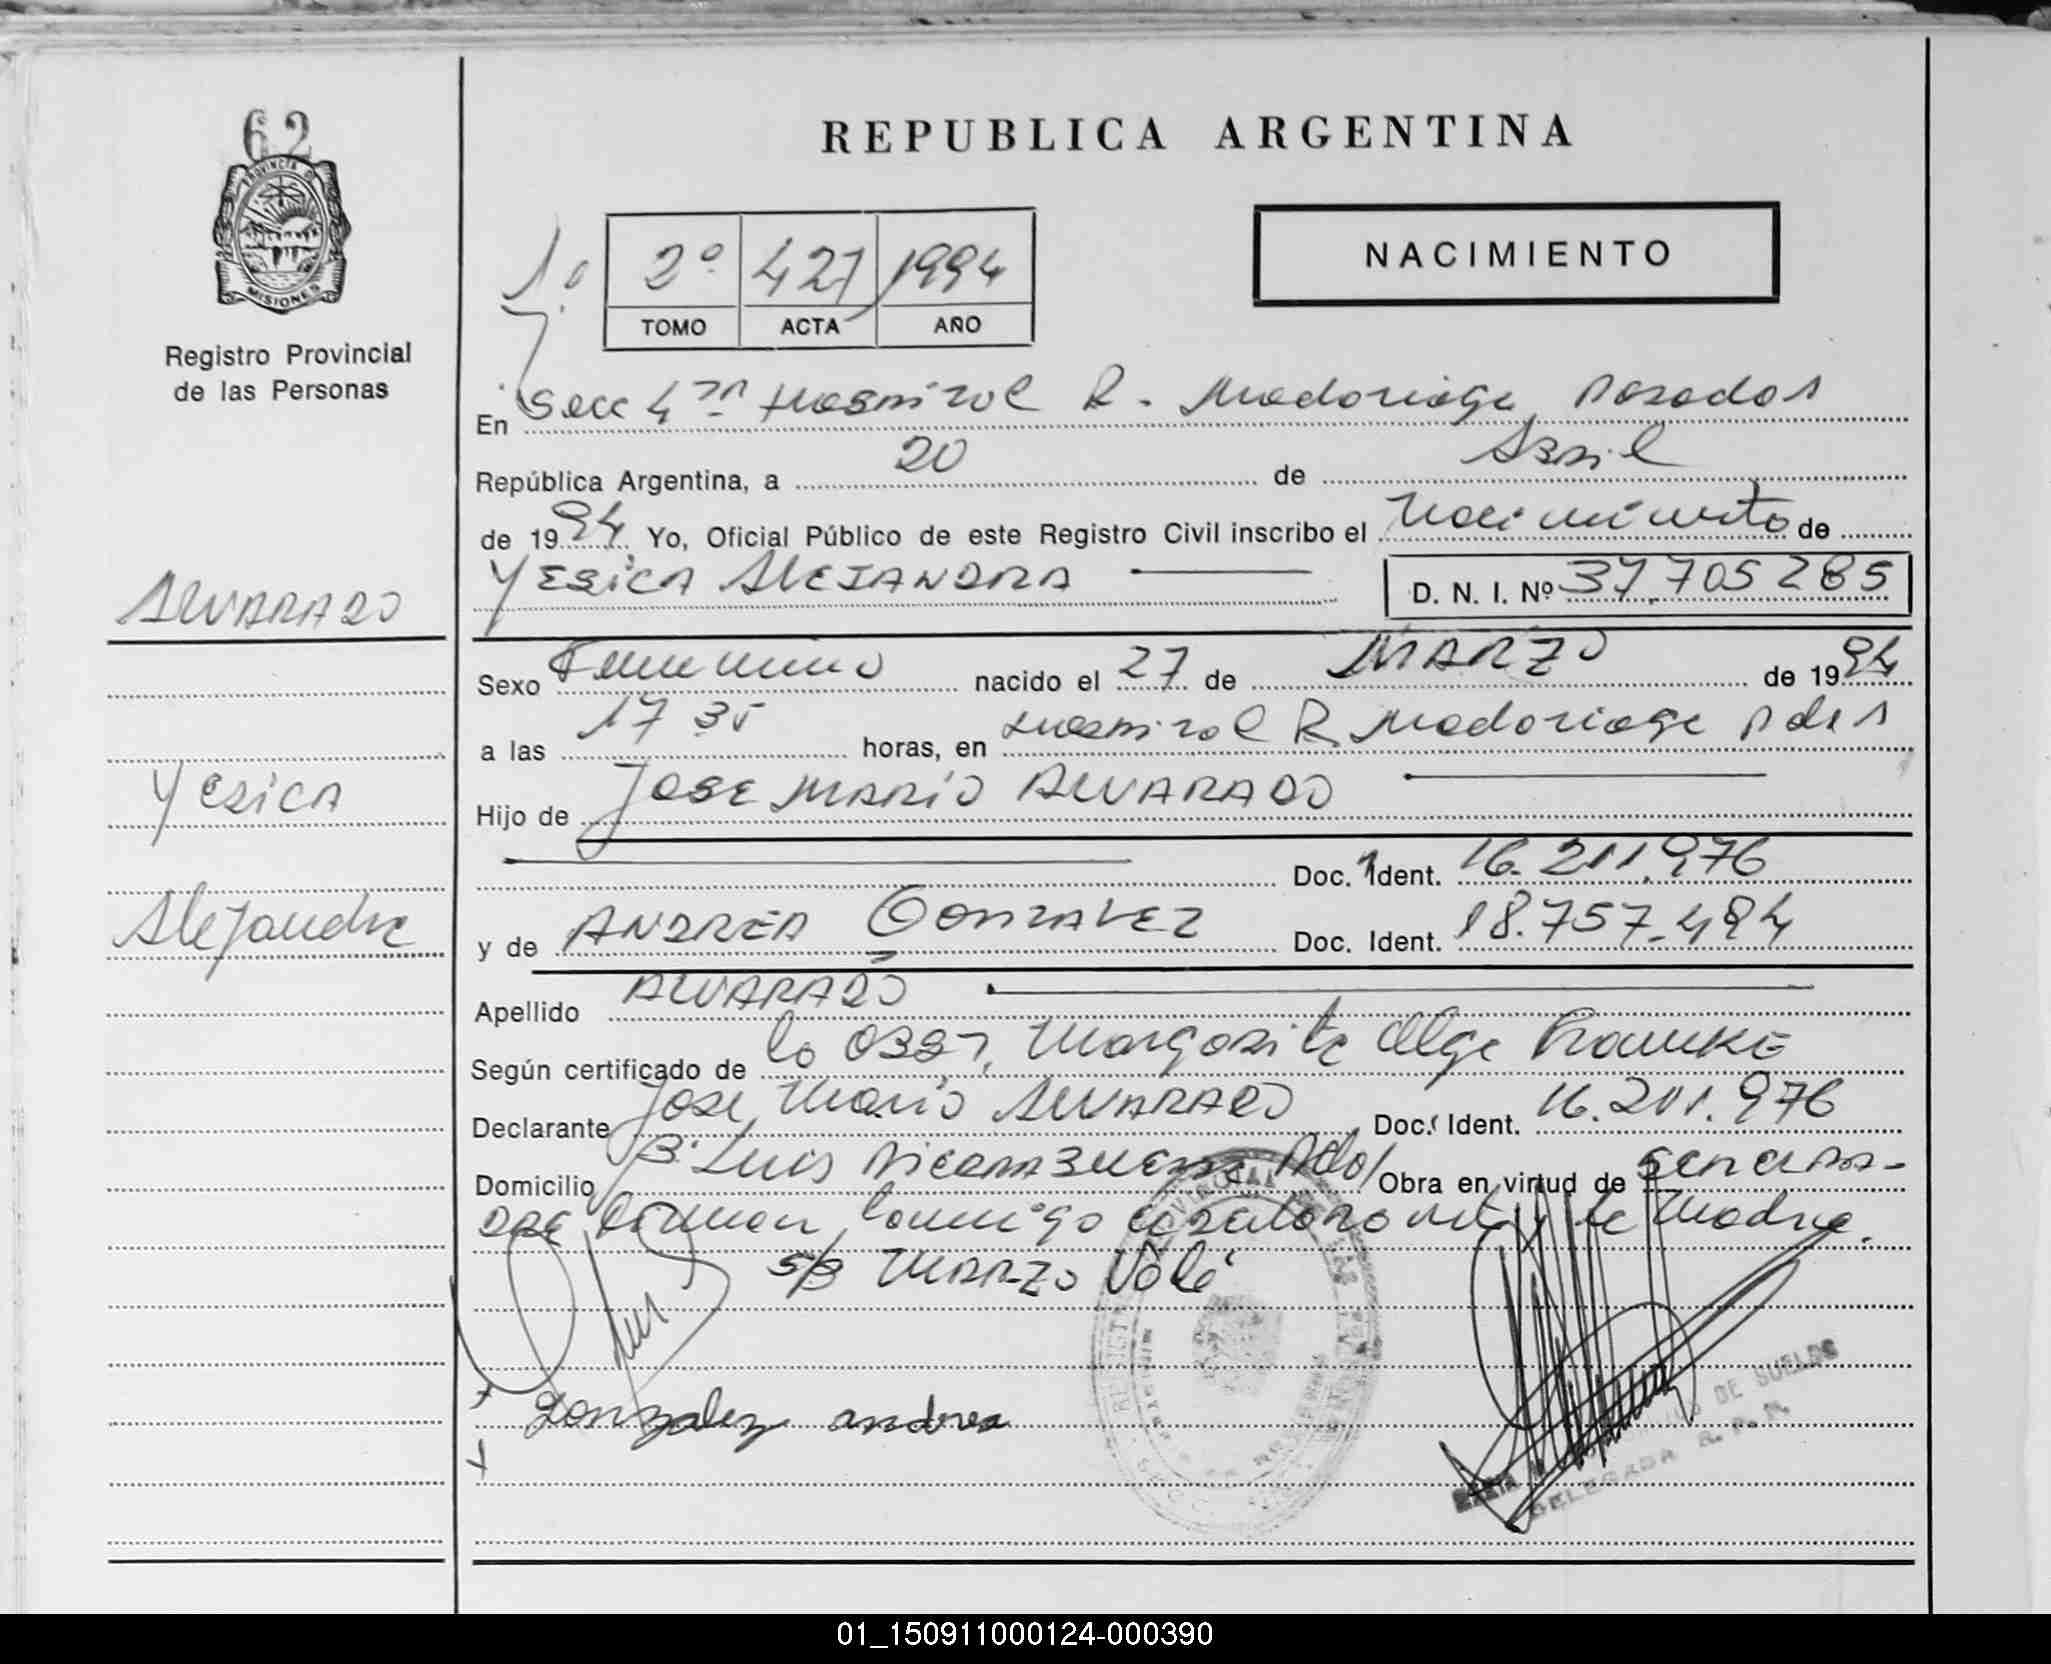 62
PROVINCIA DE
MISIONES
Registro Provincial
de las Personas
REPUBLICA ARGENTINA
NACIMIENTO
1º 2º 427 1994
TOMO ACTA AÑO
En Secc 4ta Hospital R. Madariaga, Posadas
República Argentina, a 20 de Abril
de 1994 Yo, Oficial Público de este Registro Civil inscribo el Nacimiento de
YESICA ALEJANDRA D. N. I. Nº 37.705285
ALVARADO
Sexo Femenino nacido el 27 de MARZO de 1994
a las 17 35 horas, en Hospital R. Madariaga Pdas
Yesica
Hijo de JOSE MARIO ALVARADO
Doc. Ident. 16.211.976
Alejandra
y de ANDREA GONZALEZ Doc. Ident. 18.757.494
Apellido ALVARADO
Según certificado de la Obst, Margarita Olga
Declarante Jose Mario ALVARADO Doc. Ident. 16.211.976
Domicilio Bº Luis Pdas/ Obra en virtud de
firman conmigo la Madre.
s/b MARZO Vale
Gonzalez andrea
DE SUELDO
DELEGADA R. P. P.
01_150911000124-000390